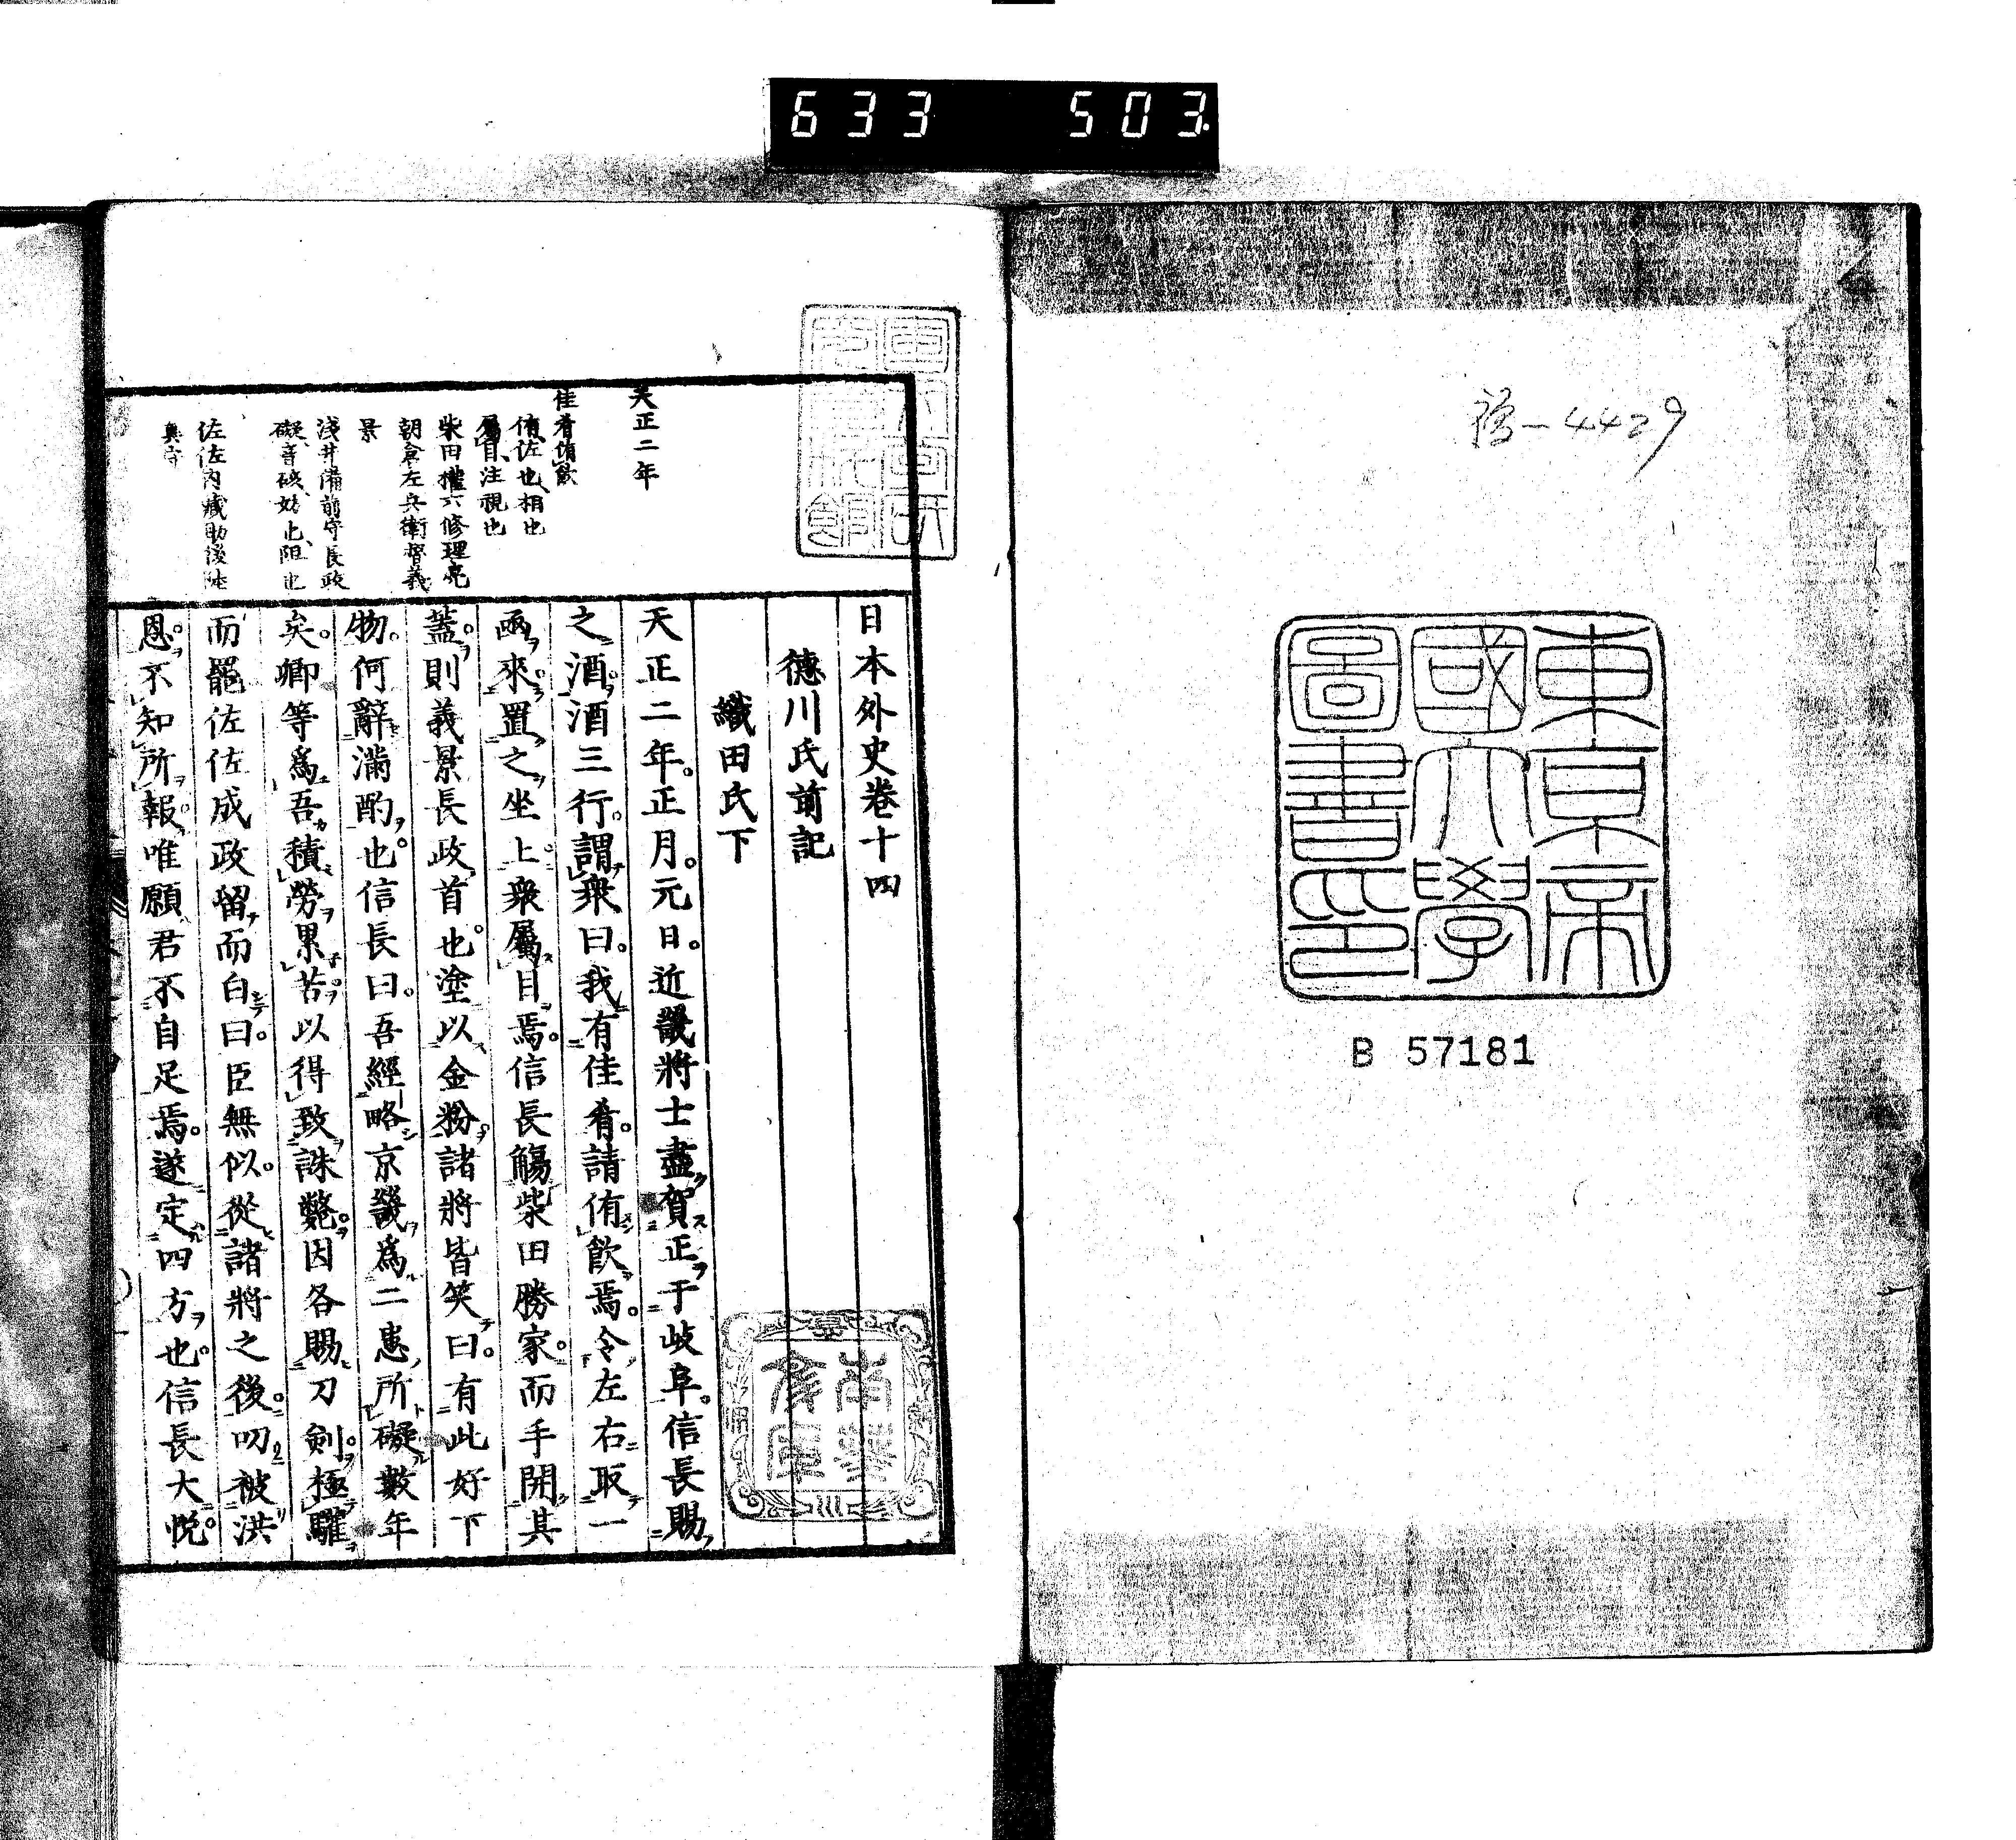 633 503
福-4429
東京帝
國大學
圖書印
B 57181
日本外史卷十四
德川氏前記
織田氏下
天正二年。正月。元日。近畿將士盡賀正于岐阜。信長賜
之酒。酒三行。謂衆曰。我有佳肴。請侑飲焉。令左右取一
凾來。置之坐上。衆屬目焉。信長觴柴田勝家。而手開其
蓋。則義景長政首也。塗以金粉。諸將皆笑曰。有此好下
物。何辭滿酌也。信長曰。吾經略京畿。爲二患所礙數年
矣。卿等爲吾積勞累苦。以得致誅斃。因各賜刀劍。極驩
而罷。佐佐成政留而白曰。臣無似。從諸將之後。叨被洪
恩。不知所報。唯願君不自足焉。遂定四方也。信長大悅。
天正二年
佳肴侑飲
侑、佐也、相也
屬目、注視也
柴田權六修理亮
朝倉左兵衛督義
景
淺井備前守長政
礙、音碍、妨也、阻也
佐佐内藏助後陸
奥守
南葵
文庫